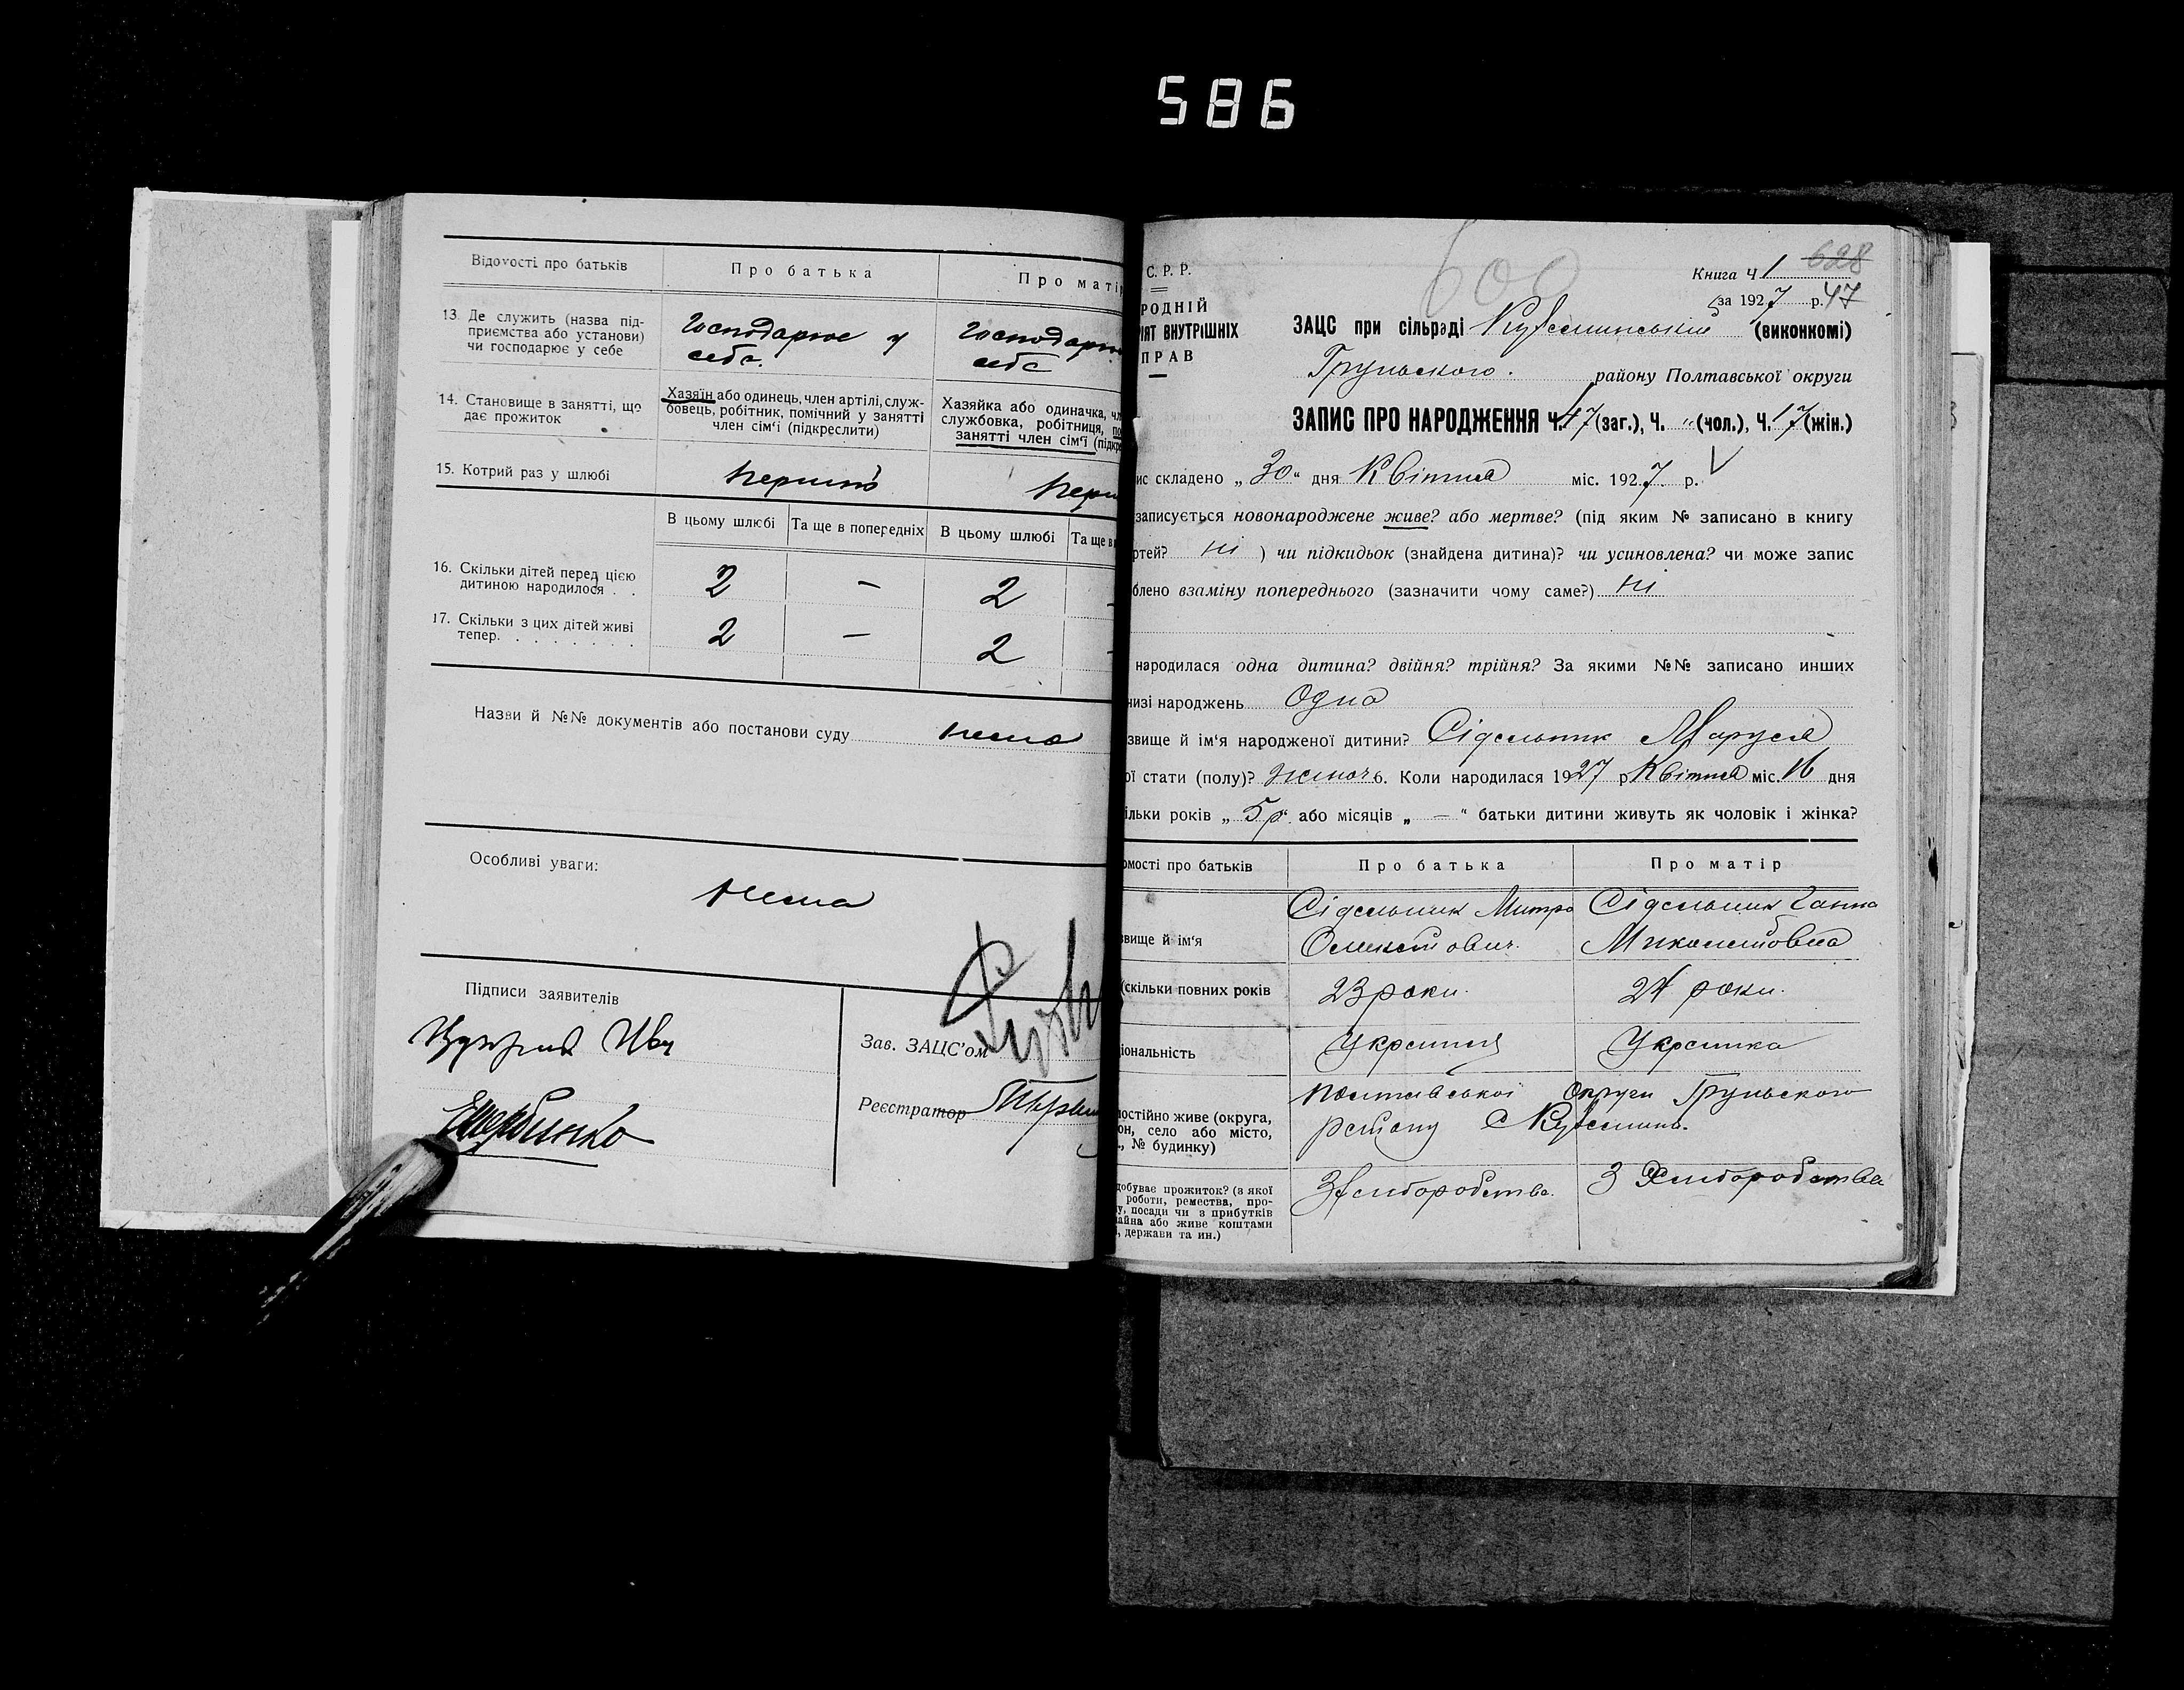 586
Відомості про батьків
Про батька
Про матір
13. Де служить (назва під-
приємства або установи)
чи господарює у себе
Господарює у
себе.
Господарю
себе
14. Становище в занятті, що
дає прожиток
Хазяїн або одинець, член артілі, служ-
бовець, робітник, помічний у занятті
член сім'ї (підкреслити)
Хазяйка або одиначка, чл
службовка, робітниця, по
занятті член сім'ї (підкре
15. Котрий раз у шлюбі
перший
перш
В цьому шлюбі
Та ще в попередніх
В цьому шлюбі
Та ще в
16. Скільки дітей перед цією
дитиною народилося . .
2
—
2
17. Скільки з цих дітей живі
тепер. . . . . . . .
2
—
2
Назви й №№ документів або постанови суду нема
Особливі уваги:
нема
Підписи заявителів
Зав. ЗАЦС'ом
Реєстратор
С. Р. Р.
РОДНІЙ
ІЯТ ВНУТРІШНІХ
ПРАВ
600
Книга Ч 1 628
за 1927 р. 47
ЗАЦС при сільраді (виконкомі)
Грунського. району Полтавської округи
ЗАПИС ПРО НАРОДЖЕННЯ Ч. 47 (заг.), Ч. „ (чол.), Ч. 17 (жін.)
ис складено „ 30 “ дня Квітня міс. 1927 р.
записується новонароджене живе? або мертве? (під яким № записано в книгу
ртей? ні ) чи підкидьок (знайдена дитина)? чи усиновлена? чи може запис
блено взаміну попереднього (зазначити чому саме?) ні
народилася одна дитина? двійня? трійня? За якими №№ записано инших
низі народжень Одна
звище й ім'я народженої дитини? Сідельник Маруся
ої стати (полу)? жіноч б. Коли народилася 1927 р Квітня міс. 16 дня
ільки років „ 5 р. або місяців „ — “ батьки дитини живуть як чоловік і жінка?
омості про батьків
Про батька
Про матір
звище й ім'я
Сідельник Митро
Олексійович.
Сідельник Ганна
Миколаївна
(скільки повних років
23 роки.
24 роки.
іональність
Українець
Українка
постійно живе (округа,
он, село або місто,
., № будинку)
Полтавської Округи Грунського
району С
добуває прожиток? (з якої
роботи, ремества, про-
у, посади чи з прибутків
айна або живе коштами
і, держави та ин.)
З хліборобства.
З Хліборобства